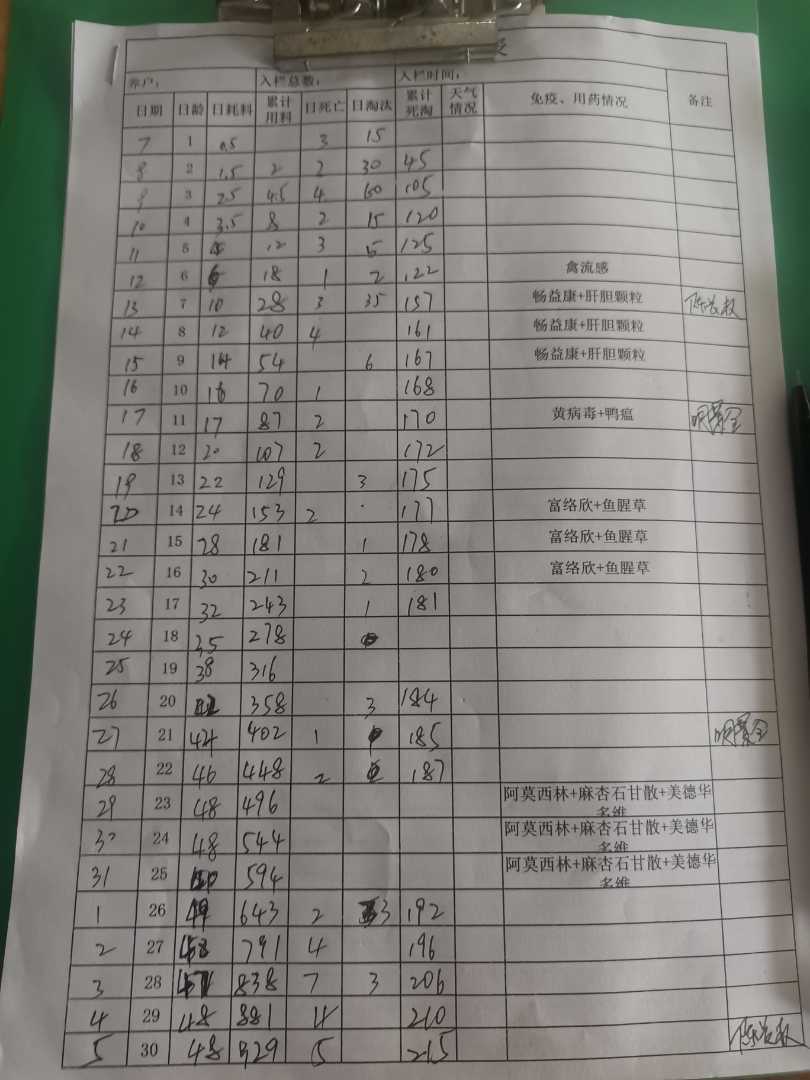 养户： 入栏总数： 入栏时间：
日期 日龄 日耗料 累计用料 日死亡 日淘汰 累计死淘 天气情况 免疫、用药情况 备注
7 1 0.5 3 15
8 2 1.5 2 2 30 45
9 3 2.5 4.5 4 60 105
10 4 3.5 8 2 15 120
11 5 12 3 5 125
12 6 6 18 1 2 122 禽流感
13 7 10 28 3 35 157 畅益康+肝胆颗粒
14 8 12 40 4 161 畅益康+肝胆颗粒
15 9 14 54 6 167 畅益康+肝胆颗粒
16 10 16 70 1 168
17 11 17 87 2 170 黄病毒+鸭瘟
18 12 20 107 2 172
19 13 22 129 3 175
20 14 24 153 2 177 富络欣+鱼腥草
21 15 28 181 1 178 富络欣+鱼腥草
22 16 30 211 2 180 富络欣+鱼腥草
23 17 32 243 1 181
24 18 35 278
25 19 38 316
26 20 42 358 3 184
27 21 44 402 1 185
28 22 46 448 2 187
29 23 48 496 阿莫西林+麻杏石甘散+美德华多维
30 24 48 544 阿莫西林+麻杏石甘散+美德华多维
31 25 50 594 阿莫西林+麻杏石甘散+美德华多维
1 26 49 643 2 3 192
2 27 48 791 4 196
3 28 47 838 7 3 206
4 29 48 881 4 210
5 30 48 929 5 215